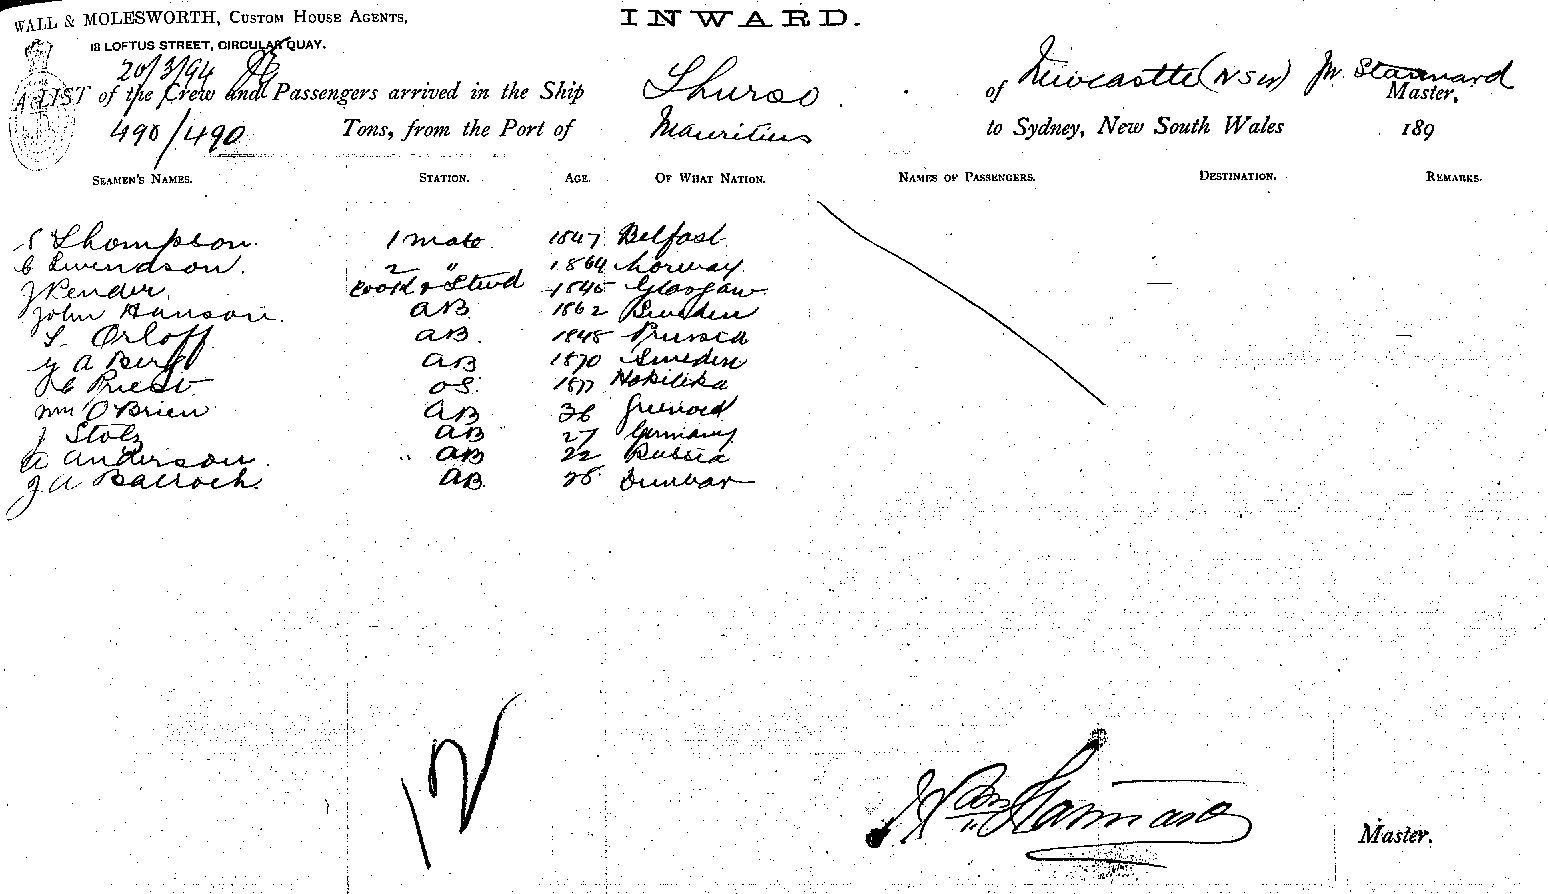 WALL & MOLESWORTH, CUSTOM HOUSE AGENTS,
INWARD.
18 LOFTUS STREET, CIRCULAR QUAY.
20/3/94
A LIST of the Crew and Passengers arrived in the Ship Thurso of Newcastle (NSW) Stannard Master,
490/490 Tons, from the Port of Mauritius to Sydney, New South Wales 189
SEAMEN'S NAMES. STATION. AGE. OF WHAT NATION. NAMES OF PASSENGERS. DESTINATION. REMARKS.
S Thompson 1 mate 1847 Belfast
C Swendson. 2 " 1864 Norway
J Render Cook & Stwd 1845 Glasgow
John Hanson AB 1862 Sweden
L Orloff AB 1848 Prussia
A Berg AB 1870 Sweden
Priest OS 1877 Hokitika
Wm O'Brien AB 36
J Stolz AB 27 Germany
A Anderson AB 22 Russia
J A AB 28 Dunbar
12
Stannard Master.